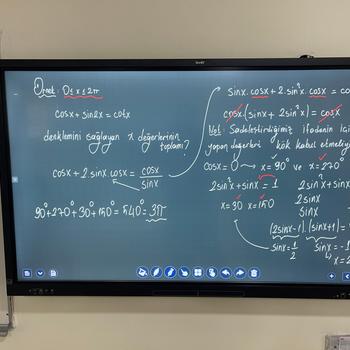 Örnek: 0≤x≤2π
cosx+sin2x=cotx
denklemini sağlayan x değerlerinin
toplamı?
cosx+2.sinx.cosx = cosx/sinx
90°+270°+30+150°=540°=3π
sinx.cosx+2.sin²x.cosx = co
cosx(sinx+2sin²x)=cosx
Not: Sadeleştirdiğimiz ifadenin içi
yapan değerleri kök kabul etmeliy
cosx=0 → x=90° ve x=270°
2sin²x+sinx=1
x=30 x=150
2sin²x+sinx
2sinx
sinx
(2sinx-1).(sinx+1)=
sinx=1/2
sinx=-1
x=2